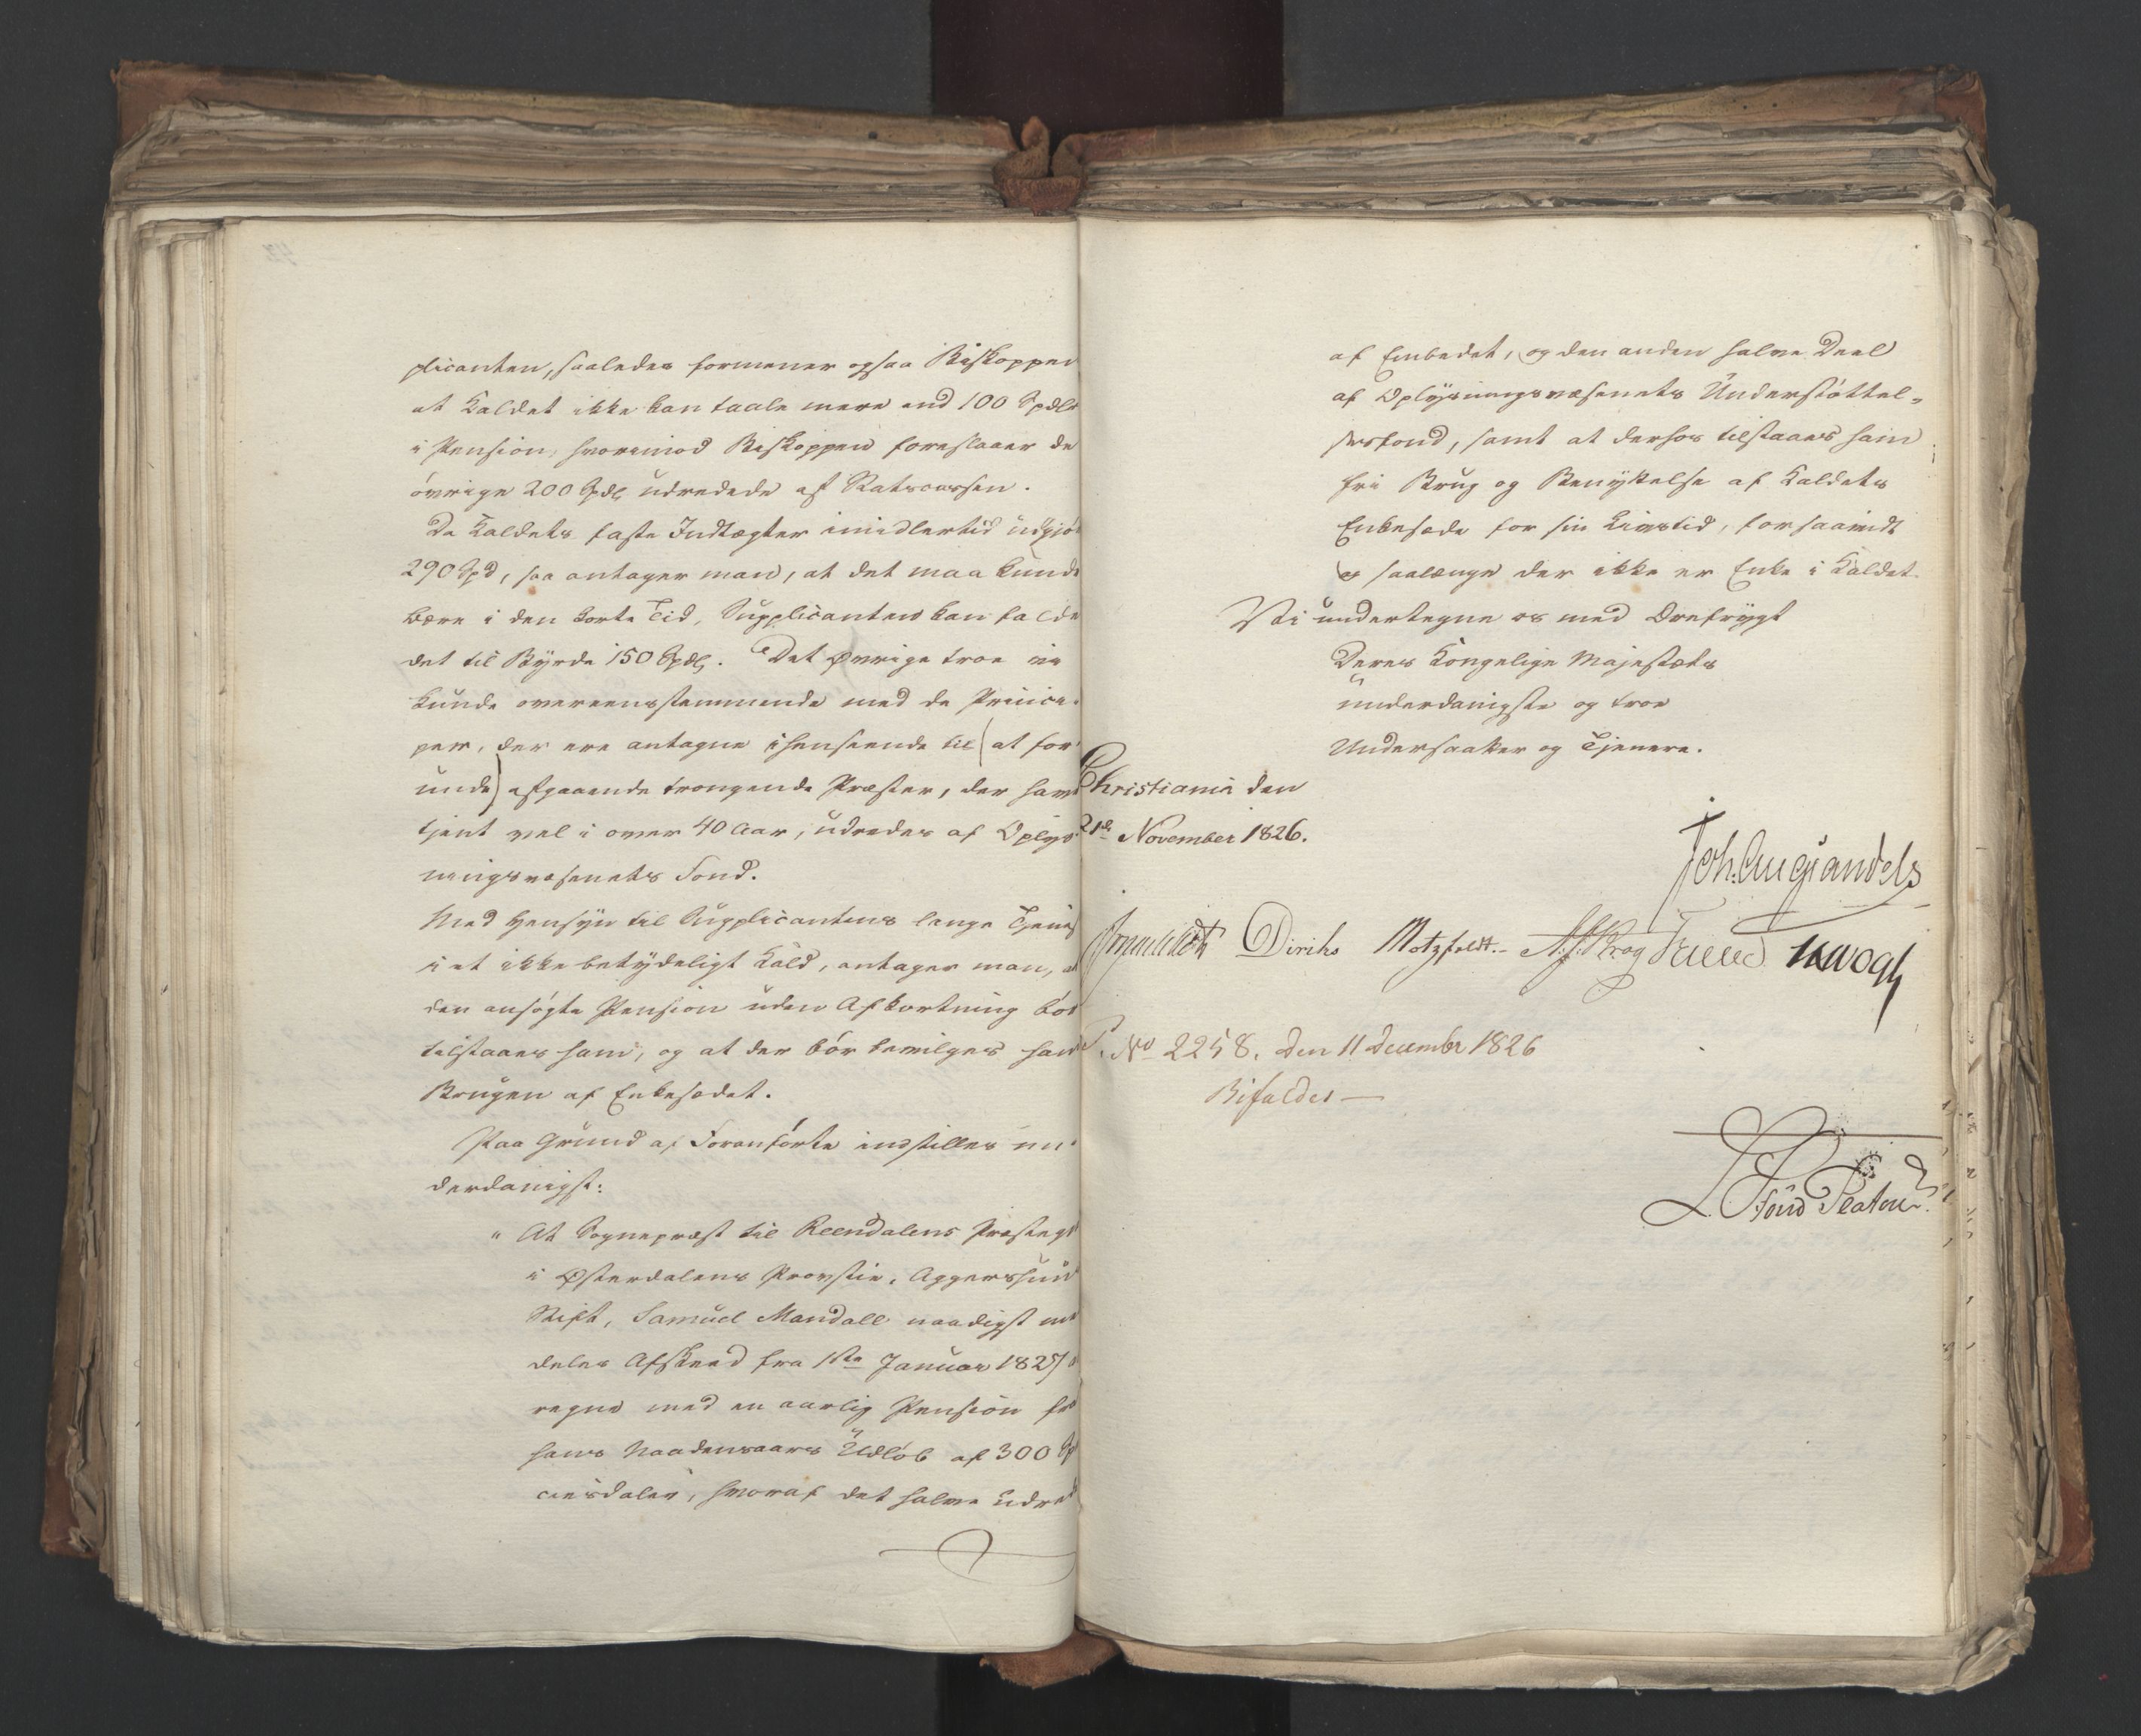 plicanten, saaledes formener ogsaa Biskoppen
at Kaldet ikke kan taale mere end 100 Spdlr
i Pension, hvorimod Biskoppen foreslaaer de
övrige 200 Spdlr udredede af Statscassen.
Da Kaldets faste Indtægter imidlertid udgjör
290 Spd, saa antager man, at det maa kunde
bære i den korte Tid, Supplicanten kan falde
det til Byrde 150 Spdlr. Det Øvrige troe vi
kunde overeensstemmende med de Princi-
per, der ere antagne ihenseende til (at for-
unde) afgaaende trængende Præster, der have
tjent vel i over 40 Aar, udredes af Oplys-
ningsvæsenets Fond.
Med Hensyn til Supplicantens lange Tjenes
i et ikke betydeligt Kald, antager man, at
den ansögte Pension uden Afkortning bör
tilstaaes ham, og at der bör bevilges ham
Brugen af Enkesædet.
Paa Grund af Foranförte indstilles un-
derdanigst:
" At Sognepræst til Reendalens Præstegd
i Østerdalens Provstie, Aggershuus
Stift, Samuel Mandall naadigst med-
deles Afskeed fra 1ste Januar 1827 a
regne med en aarlig Pension fra
hans Naadensaars Udlöb af 300 Spe
ciesdaler, hvoraf det halve udredes
af Embedet, og den anden halve Deel
af Oplysningsvæsenets Understöttel-
sesfond, samt at derhos tilstaaes ham
fri Brug og Benyttelse af Kaldets
Enkesæde for sin Livstid, forsaavidt
og saalænge der ikke er Enke i Kaldet.
Vi undertegne os med Ærefrygt
Deres Kongelige Majestæts
underdanigste og troe
Undersaatter og Tjenere.
Christiania den
21de November 1826.
Joh. Aug. Sandels
Diriks Motzfeldt. Krog JHVogt
No 2258. Den 11 Decembr 1826
Bifaldes